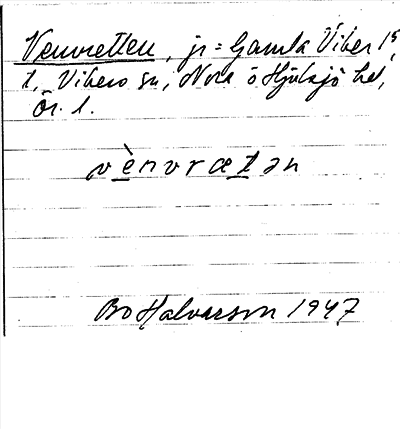 Venvretten, jr = Gamla Viker 1⁵,
t. Vikers sn, Nora o Hjulsjö bd,
Ör. l.
vènvrætən
Bo Halvarson 1947